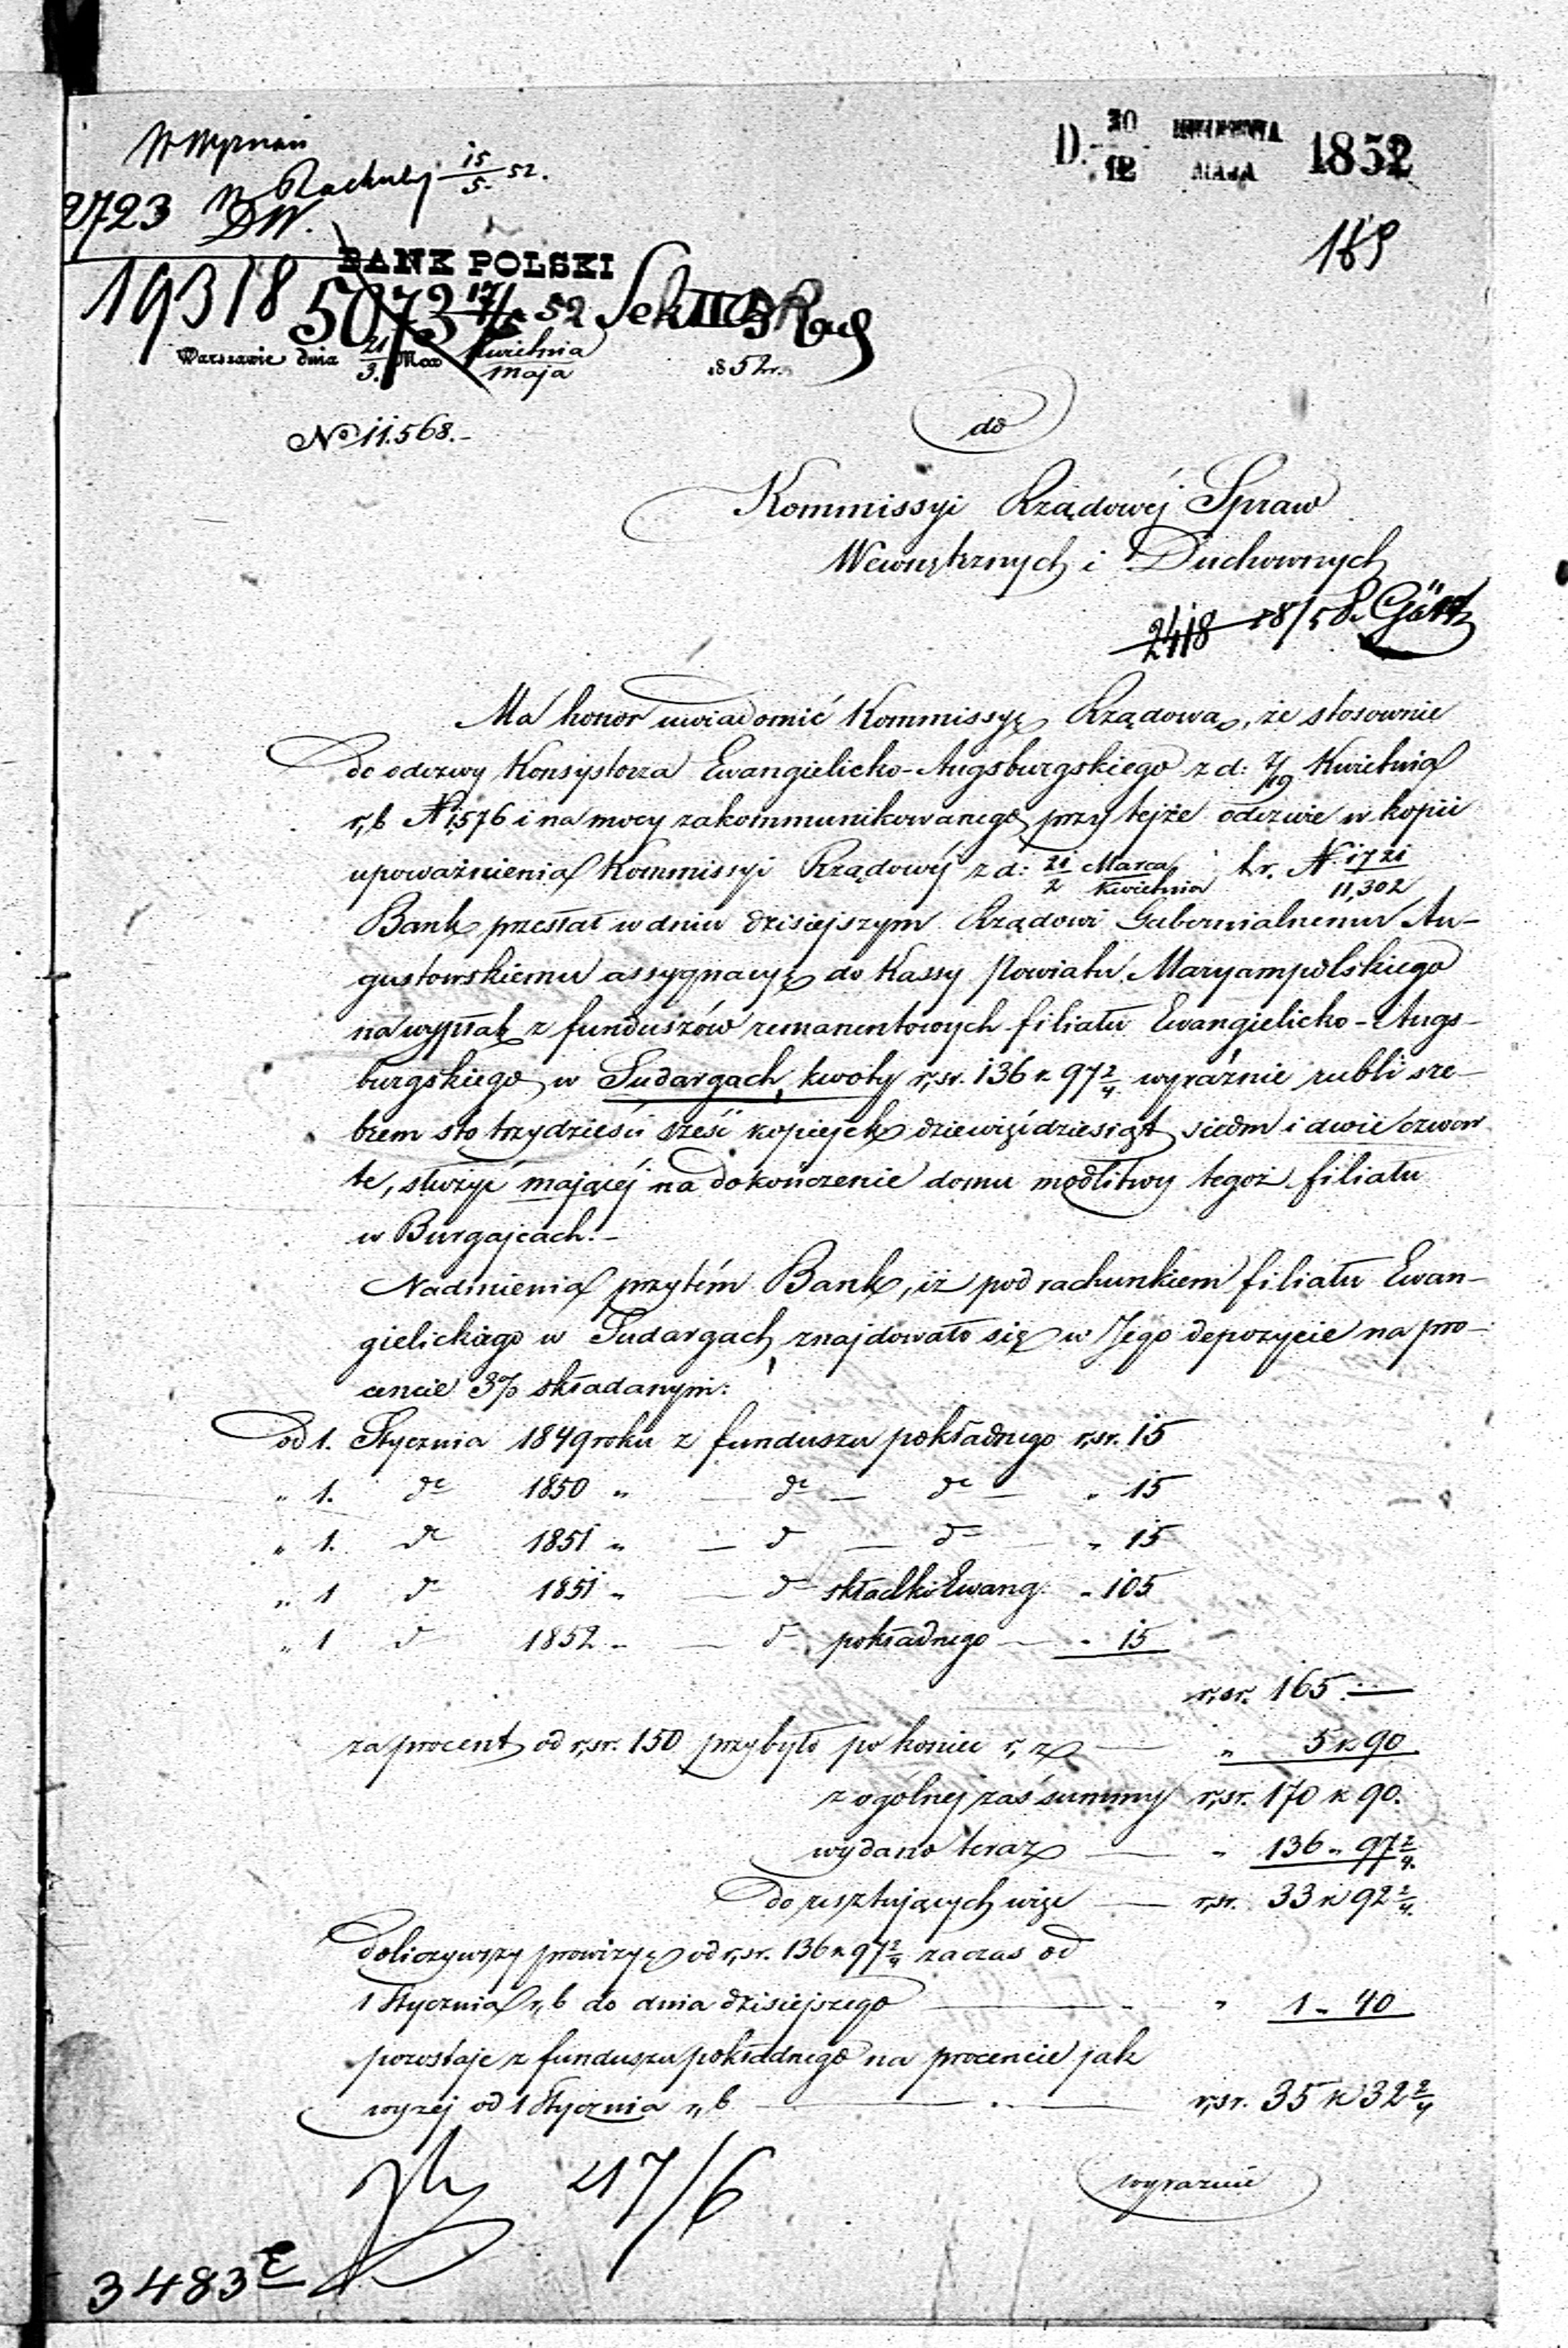 D. 30/12 KWIETNIA/MAJA 1852
W Wydziale
2723 Rachuby 15/5. 52.
DW.
189
BANK POLSKI
19318 5073 17/5 52 Sek III Rach
Warszawie dnia 21/3. Kwietnia/Maja 1852 r.
No 11.568.-
do
Kommissyi Rządowéj Spraw
Wewnętrznych i Duchownych
2418 18/5
Ma honor uwiadomić Kommissyę Rządową, że stosownie
do odezwy Konsystorza Ewangielicko-Augsburgskiego z d: 7/19 Kwietnia
r, b N 1,576 i na mocy zakommunikowanego przy tejże odezwie w kopii
upoważnienia Kommissyi Rządowéj z d: 21/2 Marca/Kwietnia t. r. N. 1721/11,302
Bank przesłał w dniu dzisiejszym Rządowi Gubernialnemu Au-
gustowskiemu assygnacyę do Kassy Powiatu Maryampolskiego
na wypłatę z funduszów remanentowych filiału Ewangielicko-Augs-
burgskiego w Sudargach, kwoty r,sr. 136 k 97 2/4 wyraźnie rubli sre-
brem sto trzydzieści sześć kopiejek dziewięćdziesiąt siedm i dwie czwar-
te, służyć mającéj na dokończenie domu modlitwy tegoż filiału
w Burgajcach.-
Nadmienia przytém Bank, iż pod rachunkiem filiału Ewan-
gielickiego w Sudargach, znajdowało się w Jego depozycie na pro-
cencie 3% składanym:
od 1. Stycznia 1849 roku z funduszu pokładnego r,sr. 15
" 1. do 1850 " — do — do — " 15
" 1. do 1851 " — do — do — " 15
" 1 do 1851 " — do składki Ewang. " 105
" 1 do 1852 " — do pokładnego — " 15
r,sr. 165.—
za procent od r,sr. 150 przybyło po koniec r, z — " 5 k 90
z ogólnej zaś summy r,sr. 170 k 90.
wydano teraz — " 136 " 97 2/4
do resztujących więc — r,sr. 33 k 92 2/4
doliczywszy prowizyę od r,sr. 136 k 97 2/4 za czas od
1 Stycznia r, b do dnia dzisiejszego — " 1 " 40
pozostaje z funduszu pokładnego na procencie jak
wyżej od 1 Stycznia r, b — r,sr. 35 k 32 2/4
17/6
wyraźnie
3483